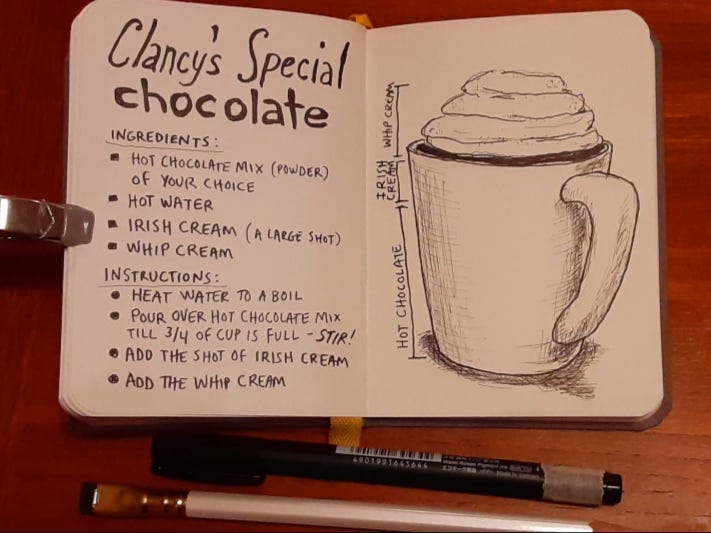 Clancy's Special
chocolate
INGREDIENTS:
HOT CHOCOLATE MIX (POWDER)
OF YOUR CHOICE
HOT WATER
IRISH CREAM (A LARGE SHOT)
WHIP CREAM
INSTRUCTIONS:
HEAT WATER TO A BOIL
POUR OVER HOT CHOCOLATE MIX
TILL 3/4 OF CUP IS FULL - STIR!
ADD THE SHOT OF IRISH CREAM
ADD THE WHIP CREAM
WHIP CREAM
IRISH
CREAM
HOT CHOCOLATE
4901991645644